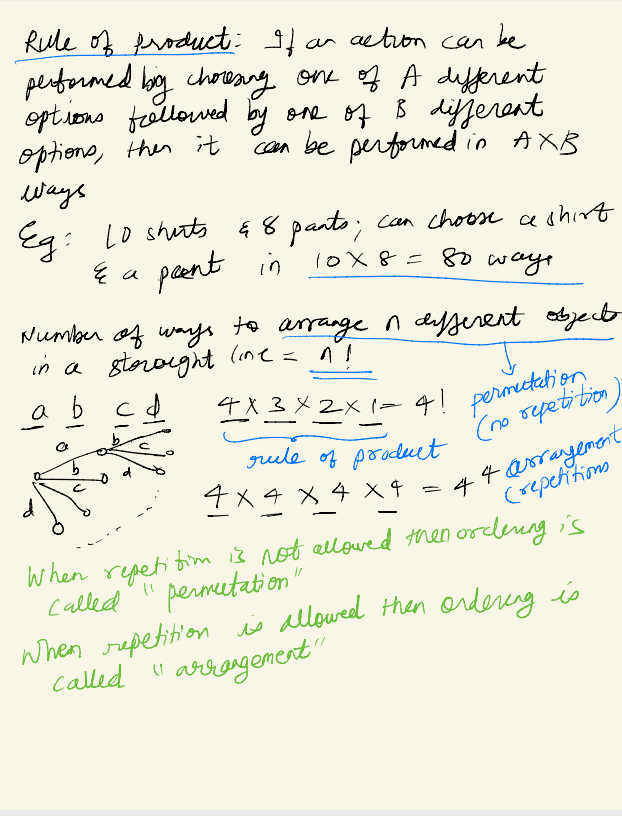 Rule of product: If an action can be
performed by choosing one of A different
options followed by one of B different
options, then it can be performed in A×B
ways
Eg: 10 shirts & 8 pants; can choose a shirt
& a pant in 10×8 = 80 ways
Number of ways to arrange n different objects
in a straight line = n!
permutation
(no repetition)
a b c d 4×3×2×1 = 4!
rule of product
a b c
b d
c
d
4×4×4×4 = 4^4 arrangement
(repetitions
When repetition is not allowed then ordering is
called "permutation"
When repetition is allowed then ordering is
called "arrangement"